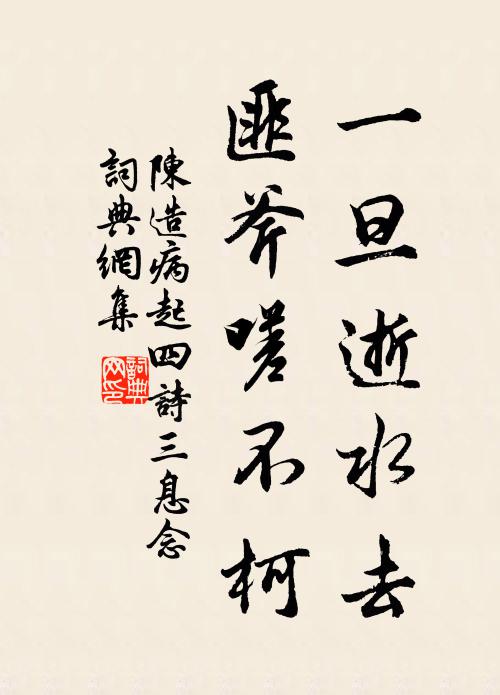 一旦逝水去
匪斧嗟不柯
陳造病起四詩三息念
詞典網集
詞典
网印